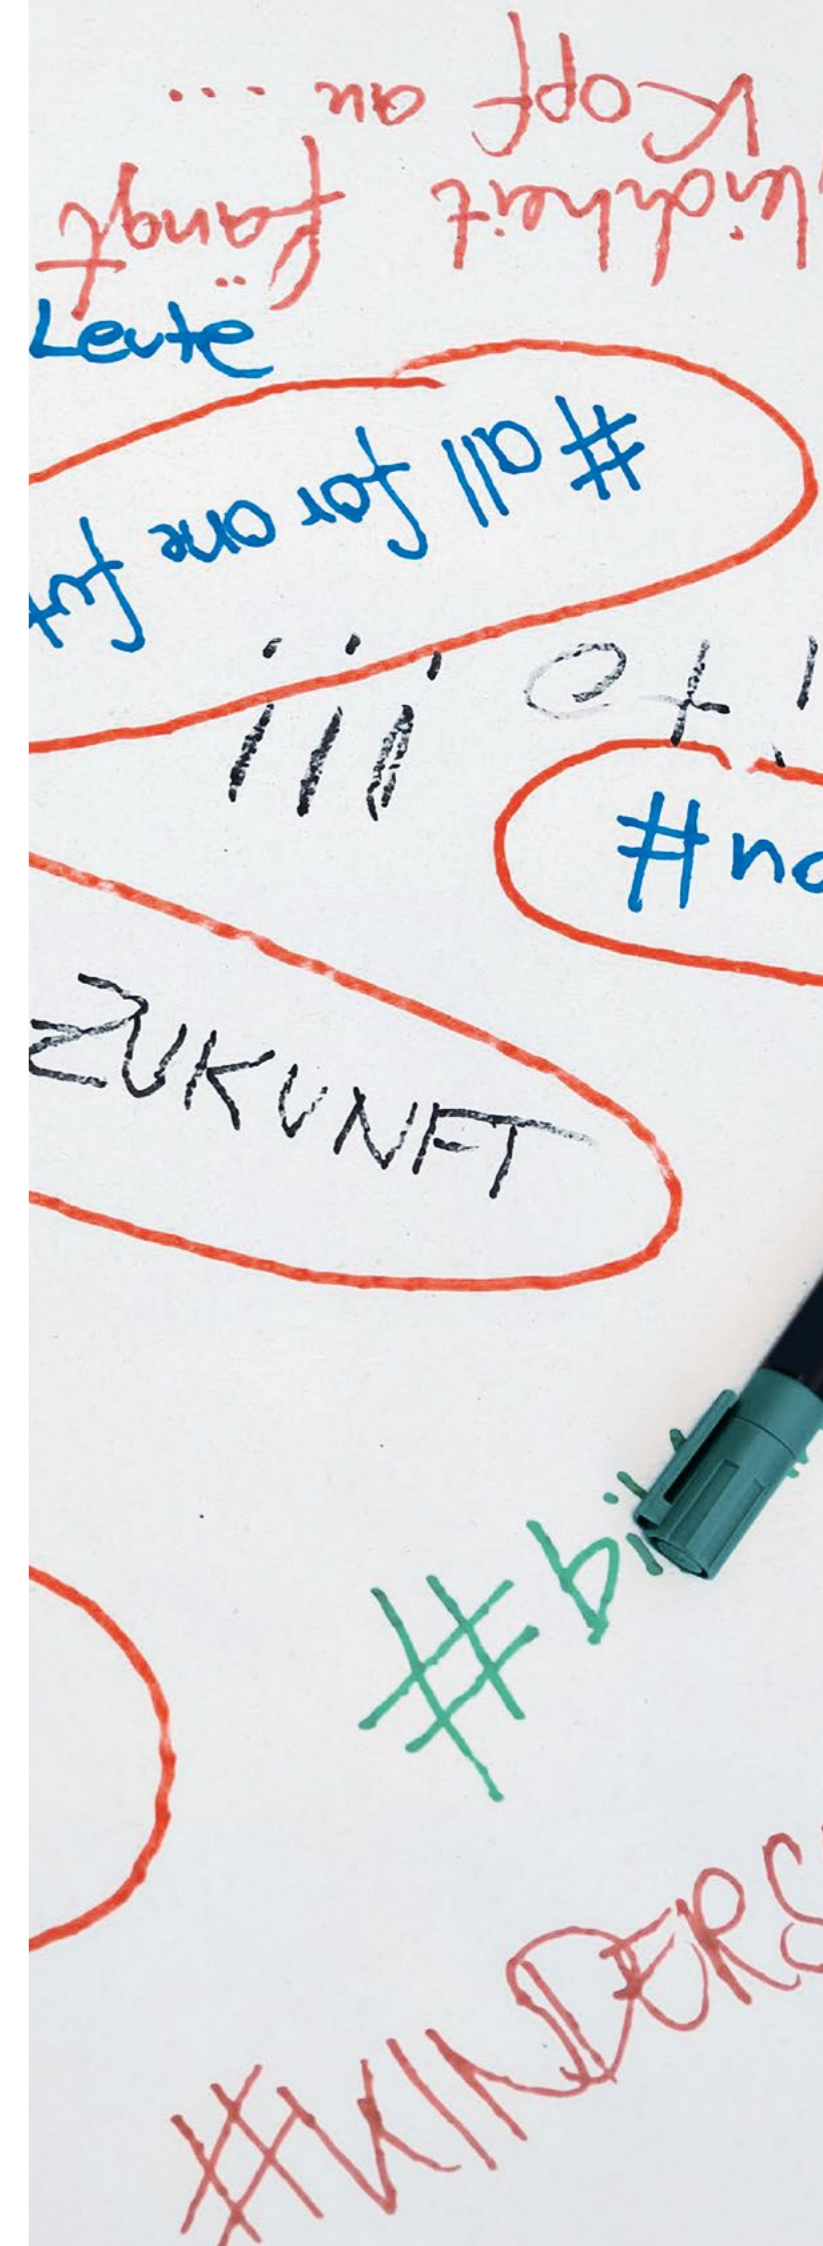 fängt
Kopf an ...
Leute
#all for one
!!!
#no
ZUKUNFT
#bi
#KINDERS